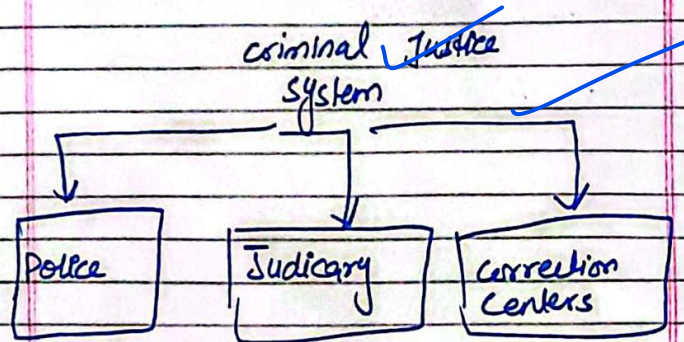 criminal Justice
system
Police
Judicary
correction
centers